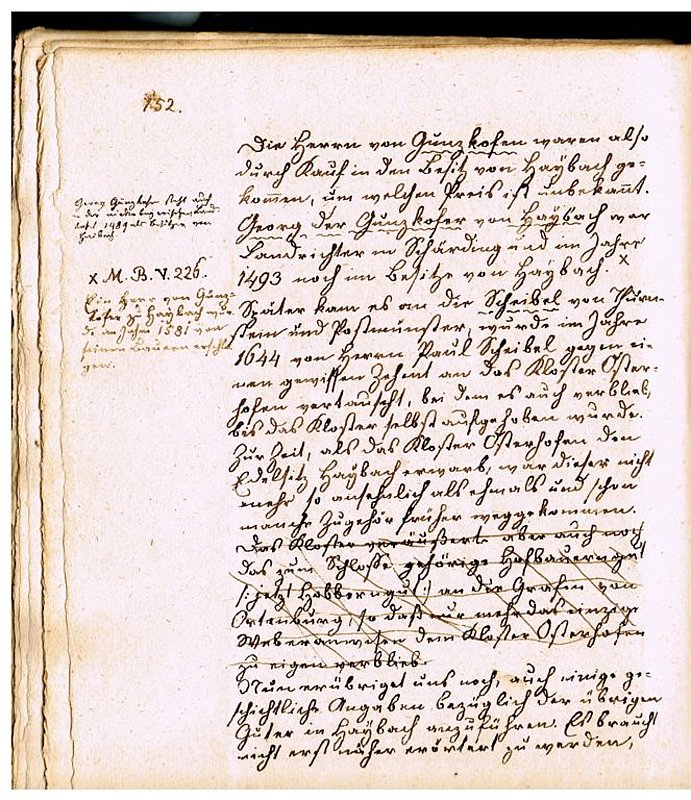 152.
Die Herrn von Gunzkofen waren also
durch Kauf in den Besitz von Haybach ge=
kom̄en, um welchen Preis ist unbekan̄t.
Georg der Gunzkofer von Haybach war
Landrichter in Schärding und im Jahre
1493 noch im Besitze von Haybach. x
Später kam es an die Scheibel von Thürn=
stein und Postmünster, wurde im Jahre
1644 von Herrn Paul Scheibel gegen ei=
nen gewissen Zehent an das Kloster Oster=
hofen vertauscht, bei dem es auch verblieb,
bis das Kloster selbst aufgehoben wurde.
Zur Zeit, als das Kloster Osterhofen den
Edelsitz Haybach erwarb, war dieser nicht
mehr so ansehnlich als ehmals und schon
manche Zugehör früher weggekommen.
Das Kloster veräußerte aber auch noch
das zum Schlosse gehörige Hofbauerngut
/: jetzt Hobberngut :/ an die Grafen von
Ortenburg, so daß nur mehr das einzige
Weberanwesen dem Kloster Osterhofen
zu eigen verblieb.
Nun erübriget uns noch, auch einige ge=
schichtliche Angaben bezüglich der übrigen
Güter in Haybach anzuführen. Es braucht
nicht erst näher erörtert zu werden,
Georg Gunzkofer steht auch
in der
1489 als Besitzer von
x M. B. V. 226.
Ein Herr von Gunz=
kofer zu Haybach wur=
de im Jahre 1581 von
seinen Bauern erschla
gen.